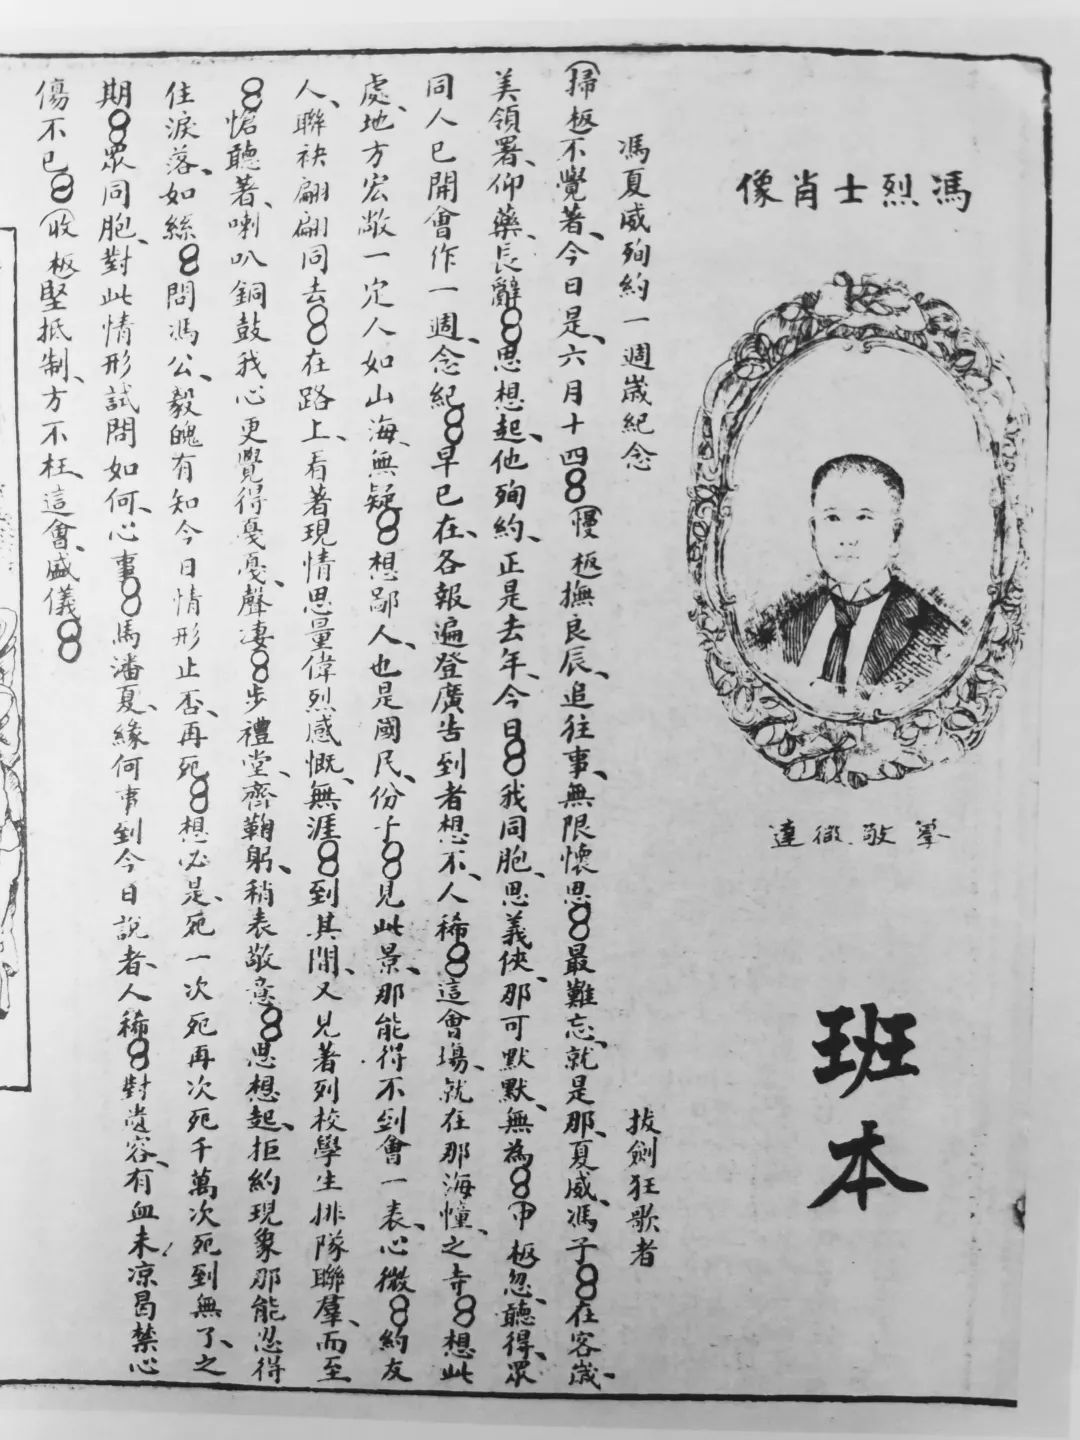 馮烈士肖像
達微敬摹
班本
馮夏威殉約一週歲紀念
拔劍狂歌者
(掃板)不覺著、今日是、六月十四8(慢板)撫良辰、追往事、無限懷思8最難忘、就是那、夏威、馮子8在客歲、
美領署、仰藥、長辭8思想起、他殉約、正是去年、今日8我同胞、思義俠、那可默默、無為8(中板)忽聽得、眾
同人已開會作一週、念紀8早已在、各報遍登廣告到者想不、人稀8這會塲、就在那海幢、之寺8想此
處、地方宏敞一定人如山海、無疑8想鄙人、也是國民、份子8見此景、那能得不到會一表、心微8約友
人、聯袂翩翩同去8在路上、看著現情思量偉烈感慨、無涯8到其間、又見著列校學生排隊聯羣、而至
8愴聽著、喇叭銅鼓我心更覺得憂憂、聲凄8步禮堂、齊鞠躬、稍表敬意8思想起、拒約現象那能忍得
住淚落、如絲8問馮公、毅魄有知今日情形止否、再死8想必是、死一次死再次死千萬次死到無了、之
期8眾同胞、對此情形試問如何、心事8馬潘夏、緣何事到今日說者、人稀8對遺容、有血未凉曷禁心
傷不已8(收板)堅抵制、方不枉、這會、盛儀8